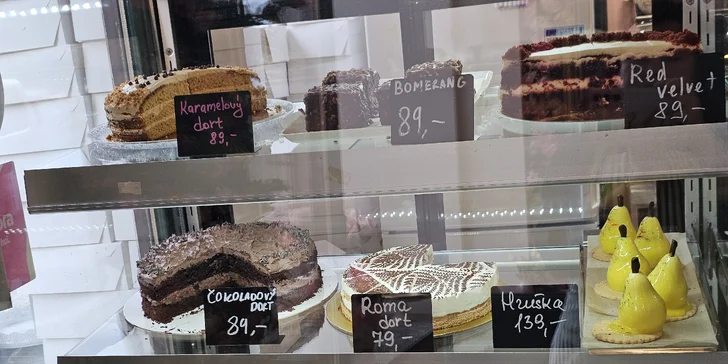 Karamelový
dort
89,-
BOMERANG
89,-
Red
velvet
89,-
ČOKOLADOVÝ
DORT
89,-
Roma
dort
79,-
Hruška
139,-